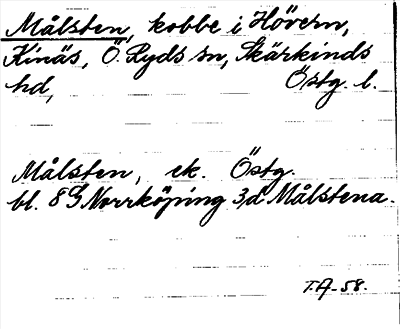 Målsten, kobbe i Hövern,
Kinäs, Ö. Ryds sn, Skärkinds
hd, Östg. l.
Målsten, ek. Östg.
bl. 8G Norrköping 3d Målstena.
T.A-58.